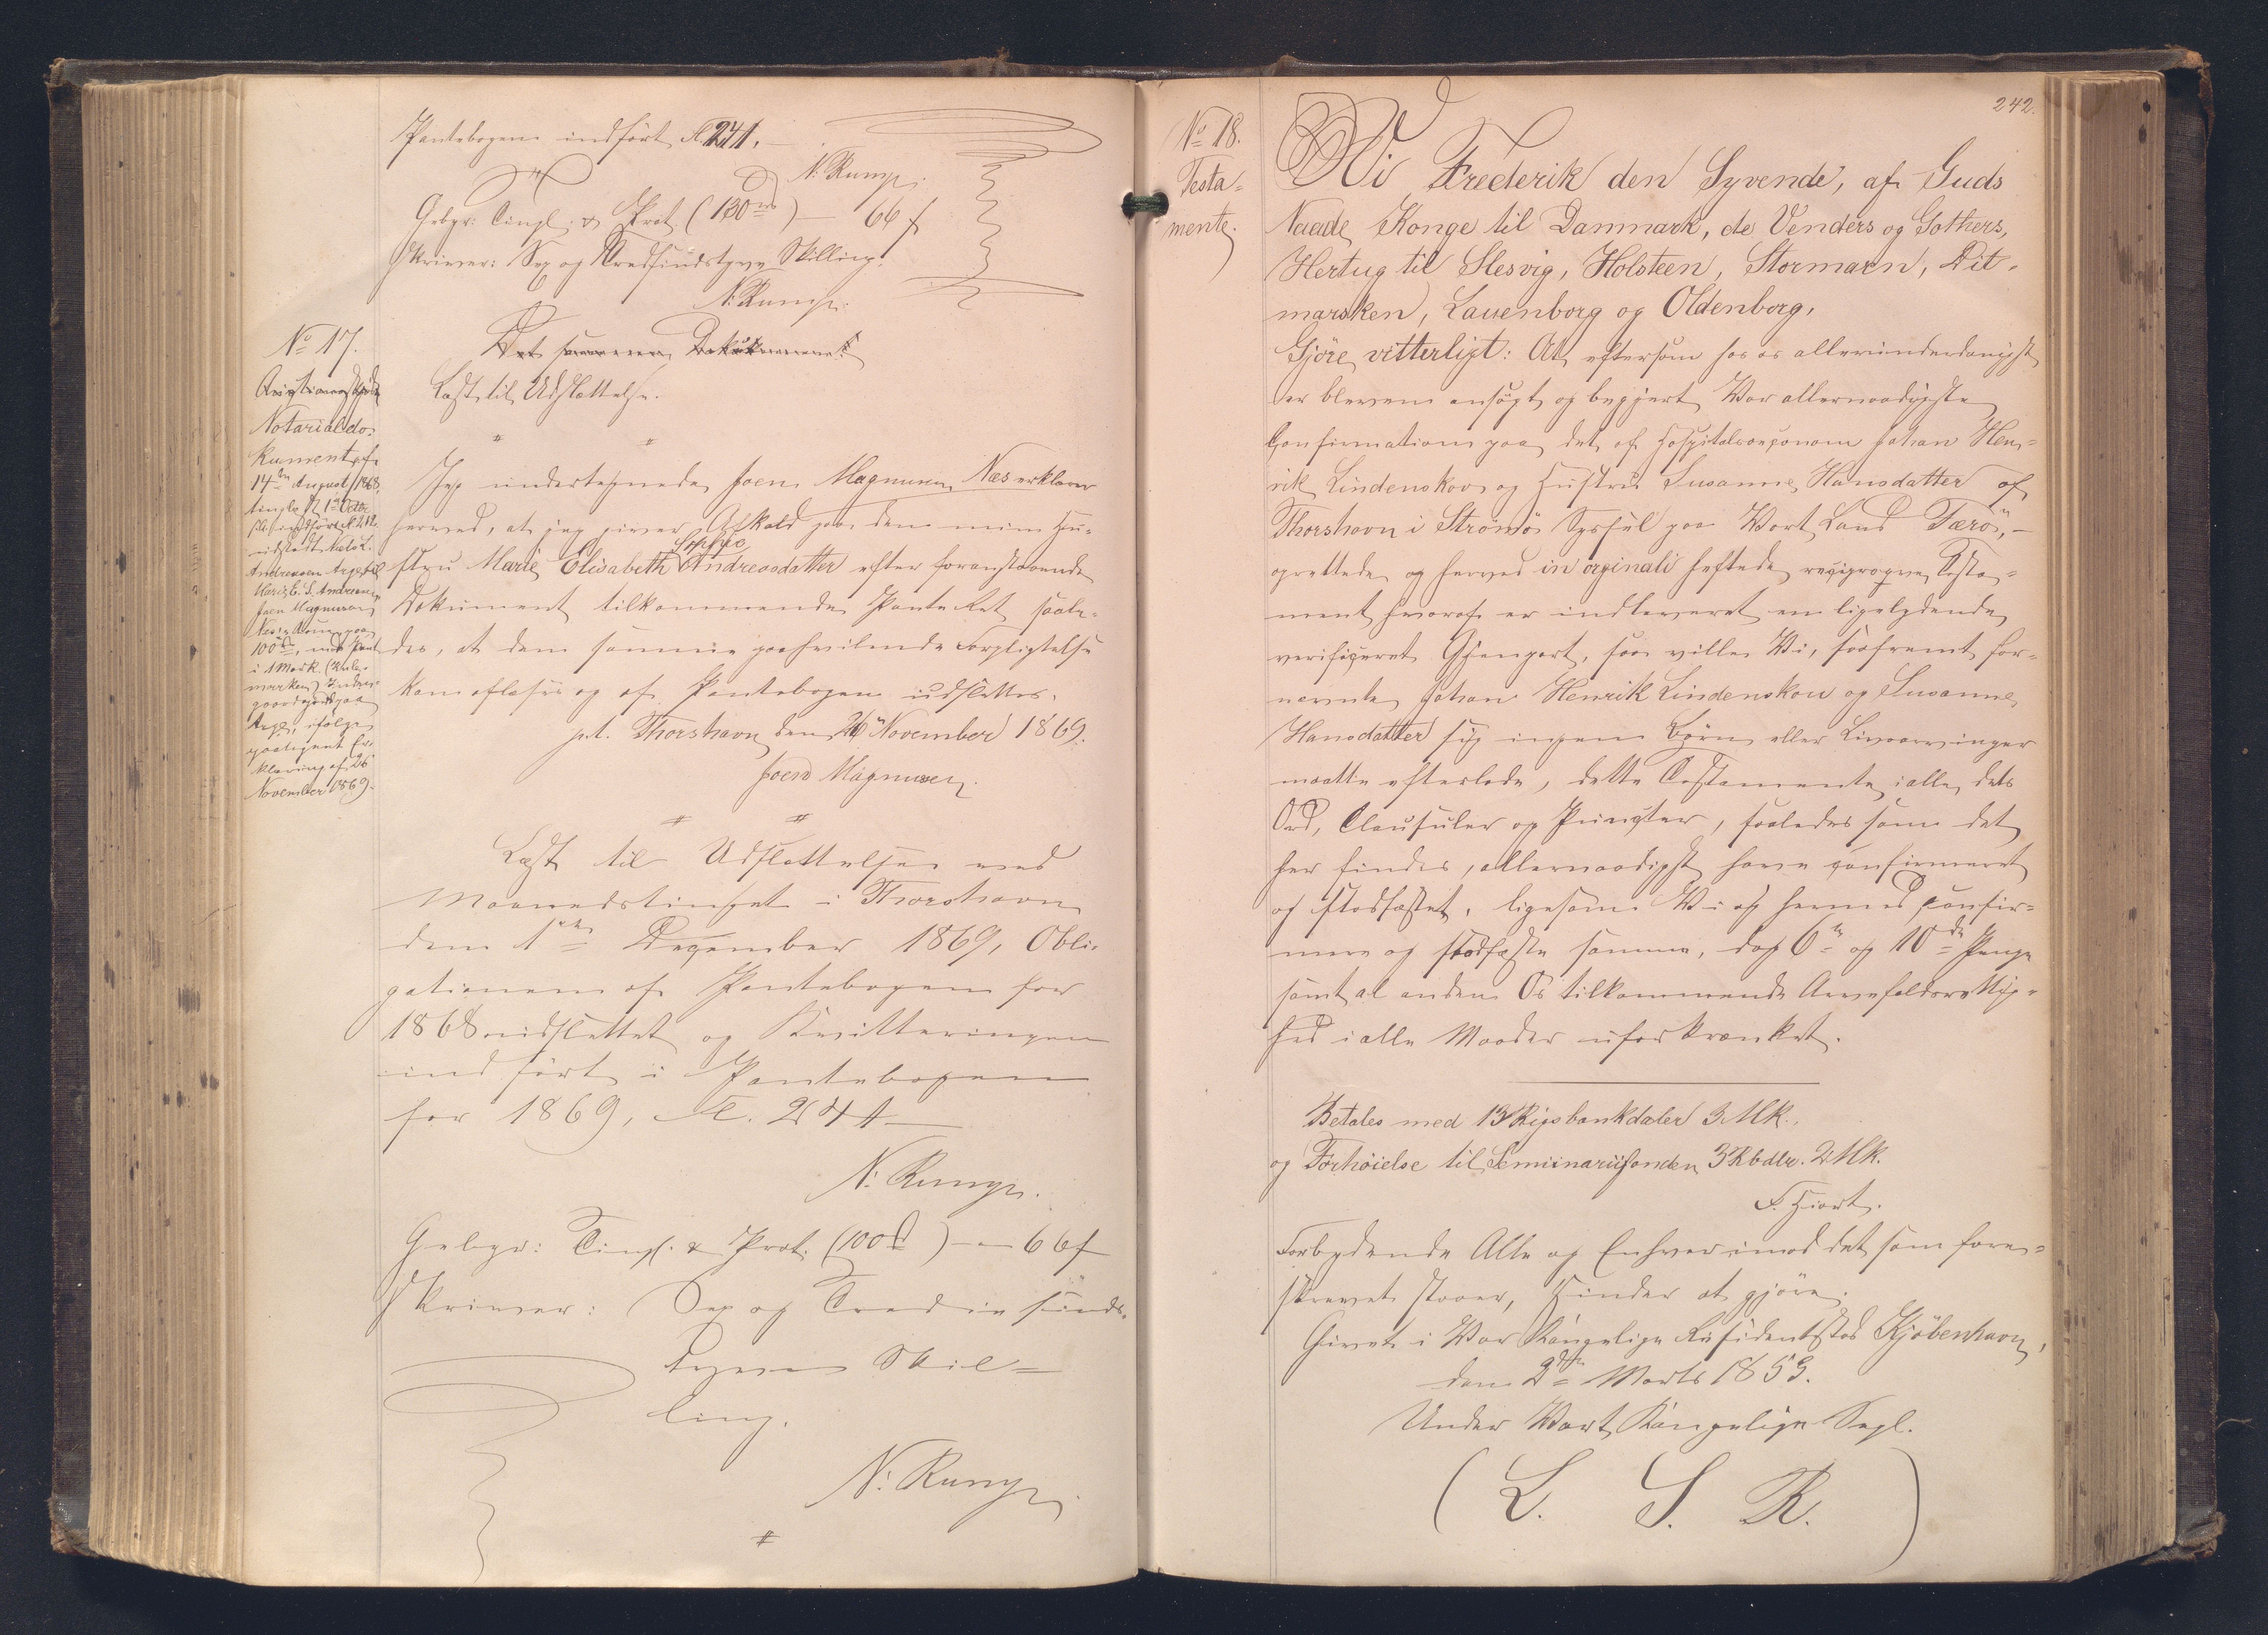 Pantebogen indført Fl. 241.
N. Runge.
Gebyr: Tingl. & Prot. (130 rd) — 66 ß
skriver: Sex og Tredsindstyve Skilling.
N. Runge.
Det samme Dokument
Læst til Udslettelse.
No 17.
Notarialdo-
kument af
14de August 1868,
Andreasen Arge til
Marie E. S. Andreas-
Joen Magnusen
100 rd, med Pant
i 1 Mark
Arge, ifølge
paategnet Er-
klæring af 26
November 1869.
Jeg undertegnede Joen Magnusen, Næs erklærer
herved, at jeg giver Afkald paa den min Hu-
stru Marie Elisabeth Sophie Andreasdatter efter foranstaaende
Dokument tilkommende Pante Ret saale-
des, at den samme paahvilende Forpligtelse
kan aflæses og af Pantebogen udslettes.
pt. Thorshavn den 26 November 1869.
Joen Magnusen.
Læst til Udslettelse ved
Maanedstinget i Thorshavn
den 1ste Dezember 1869, Obli-
gationen af Pantebogen for
1868 udslettet og Kvitteringen
indført i Pantebogen
for 1869, Fl. 241
N. Runge.
Gebyr: Tingl. & Prot. (100 rd) — 66 ß
skriver: Sex og Tredsinds-
tyve Skil-
ling.
N. Runge.
242.
No 18.
Testa-
mente.
Vi Frederik den Syvende, af Guds
Naade Konge til Danmark, de Venders og Gothers,
Hertug til Slesvig, Holsteen, Stormarn, Dit-
marsken, Lauenborg og Oldenborg,
Gjøre vitterligt: At, eftersom hos os allerunderdanigst
er bleven ansøgt og begjert Vor allernaadigste
Confirmation paa det af Hospitalsoeconom Johan Hen-
rik Lindenskov og Hustru Susanne Hansdatter af
Thorshavn i Strømø Syssel paa Vort Land Færø, —
oprettede og herved in originali heftede reciproqve Testa-
ment hvoraf er indleveret en ligelydende
verificeret Gjenpart, saa ville Vi, saafremt for-
nævnte Johan Henrik Lindenskov og Susanne
Hansdatter sig ingen Børn eller Livsarvinger
maatte efterlade, dette Testamente i alle dets
Ord, Clausuler og Puncter, saaledes som det
her findes, allernaadigst have confirmeret
og stadfæstet, ligesom Vi og hermed confir-
mere og stadfæste samme, dog 6te og 10de Penge
samt al anden Os tilkommende Arvefaldsrettig-
hed i alle Maader uforkrænket.
Betales med 13 Rigsbankdaler 3 Mk.,
og Forhøielse til Seminariifonden 3 Rbdlr. 2 Mk.
F. Hiort.
Forbydende Alle og Enhver imod det som fore-
skrevet staaer, Hinder at gjøre.
Givet i Vor Kongelige Residentsstad Kjøbenhavn,
den 2den Marts 1853.
Under Vort Kongelige Segl.
(L. S. R.)